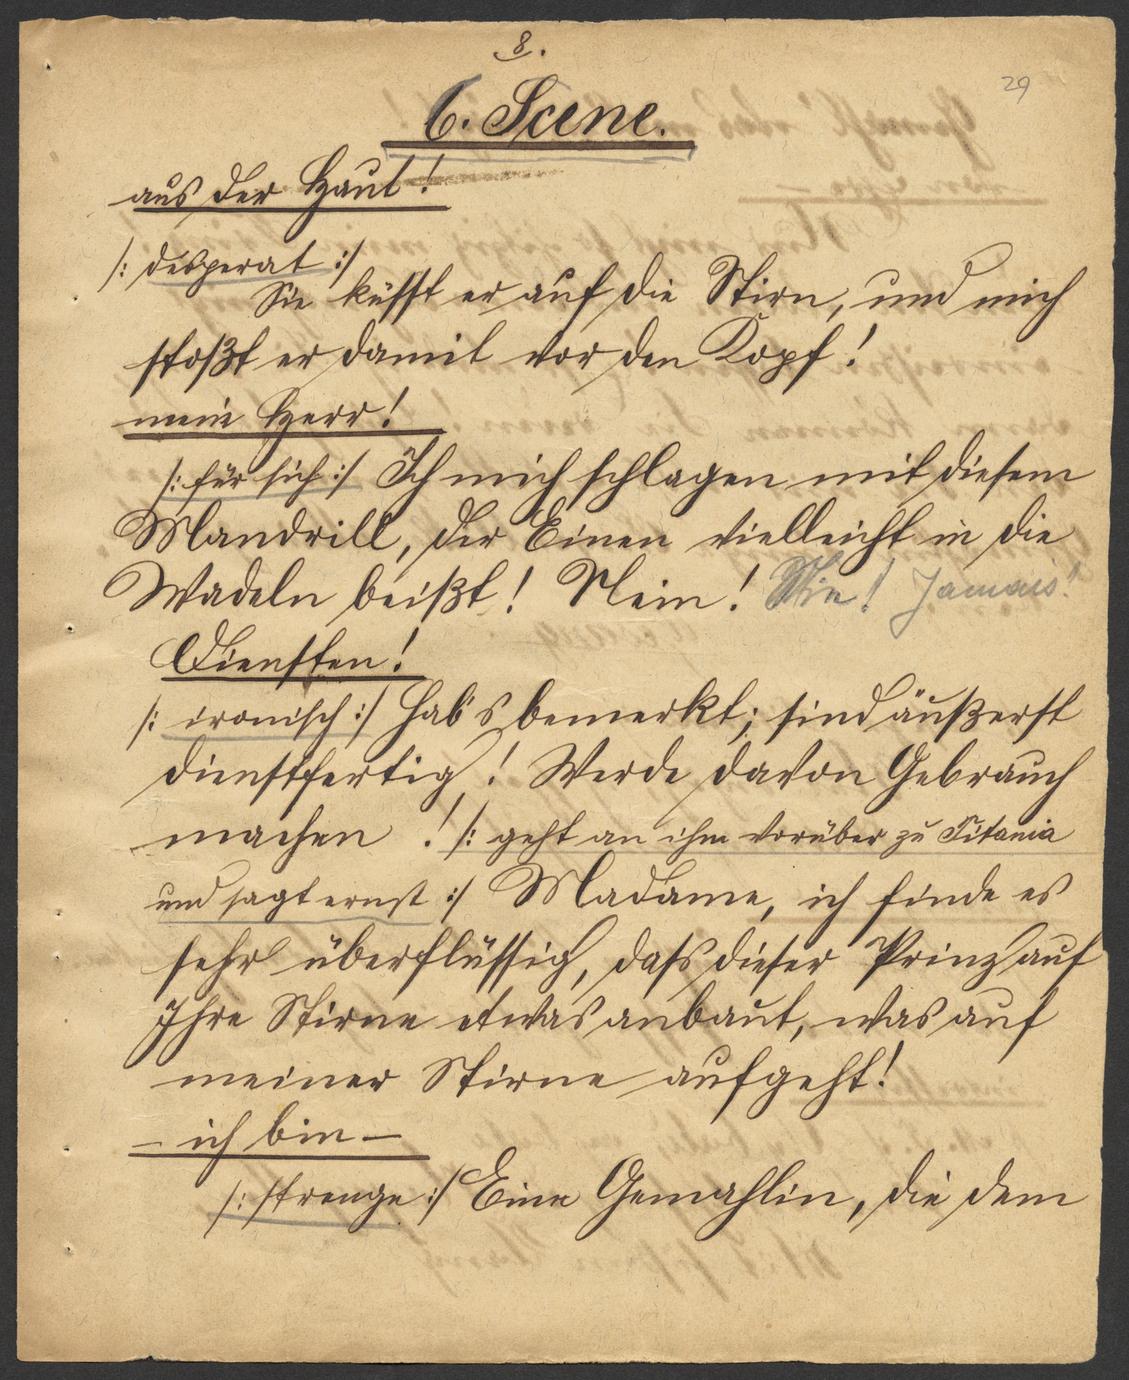 8.
29
6. Scene.
aus der Haut!
/: desperat :/
Sie küsst er auf die Stirn, und mich
stoßt er damit vor den Kopf!
mein Herr!
/: für sich :/ Ich mich schlagen mit diesem
Mandrill, der Einen vielleicht in die
Wadeln beißt! Nein! Nie! Jamais!
Diensten!
/: ironisch :/ Hab's bemerkt; sind äußerst
dienstfertig! Werde davon Gebrauch
machen! /: geht an ihm vorüber zu Titania
und sagt ernst :/ Madame, ich finde es
sehr überflüssig, dass dieser Prinz auf
Ihre Stirne etwas anbaut, was auf
meiner Stirne aufgeht!
– ich bin –
/: strenge :/ Eine Gemahlin, die dem